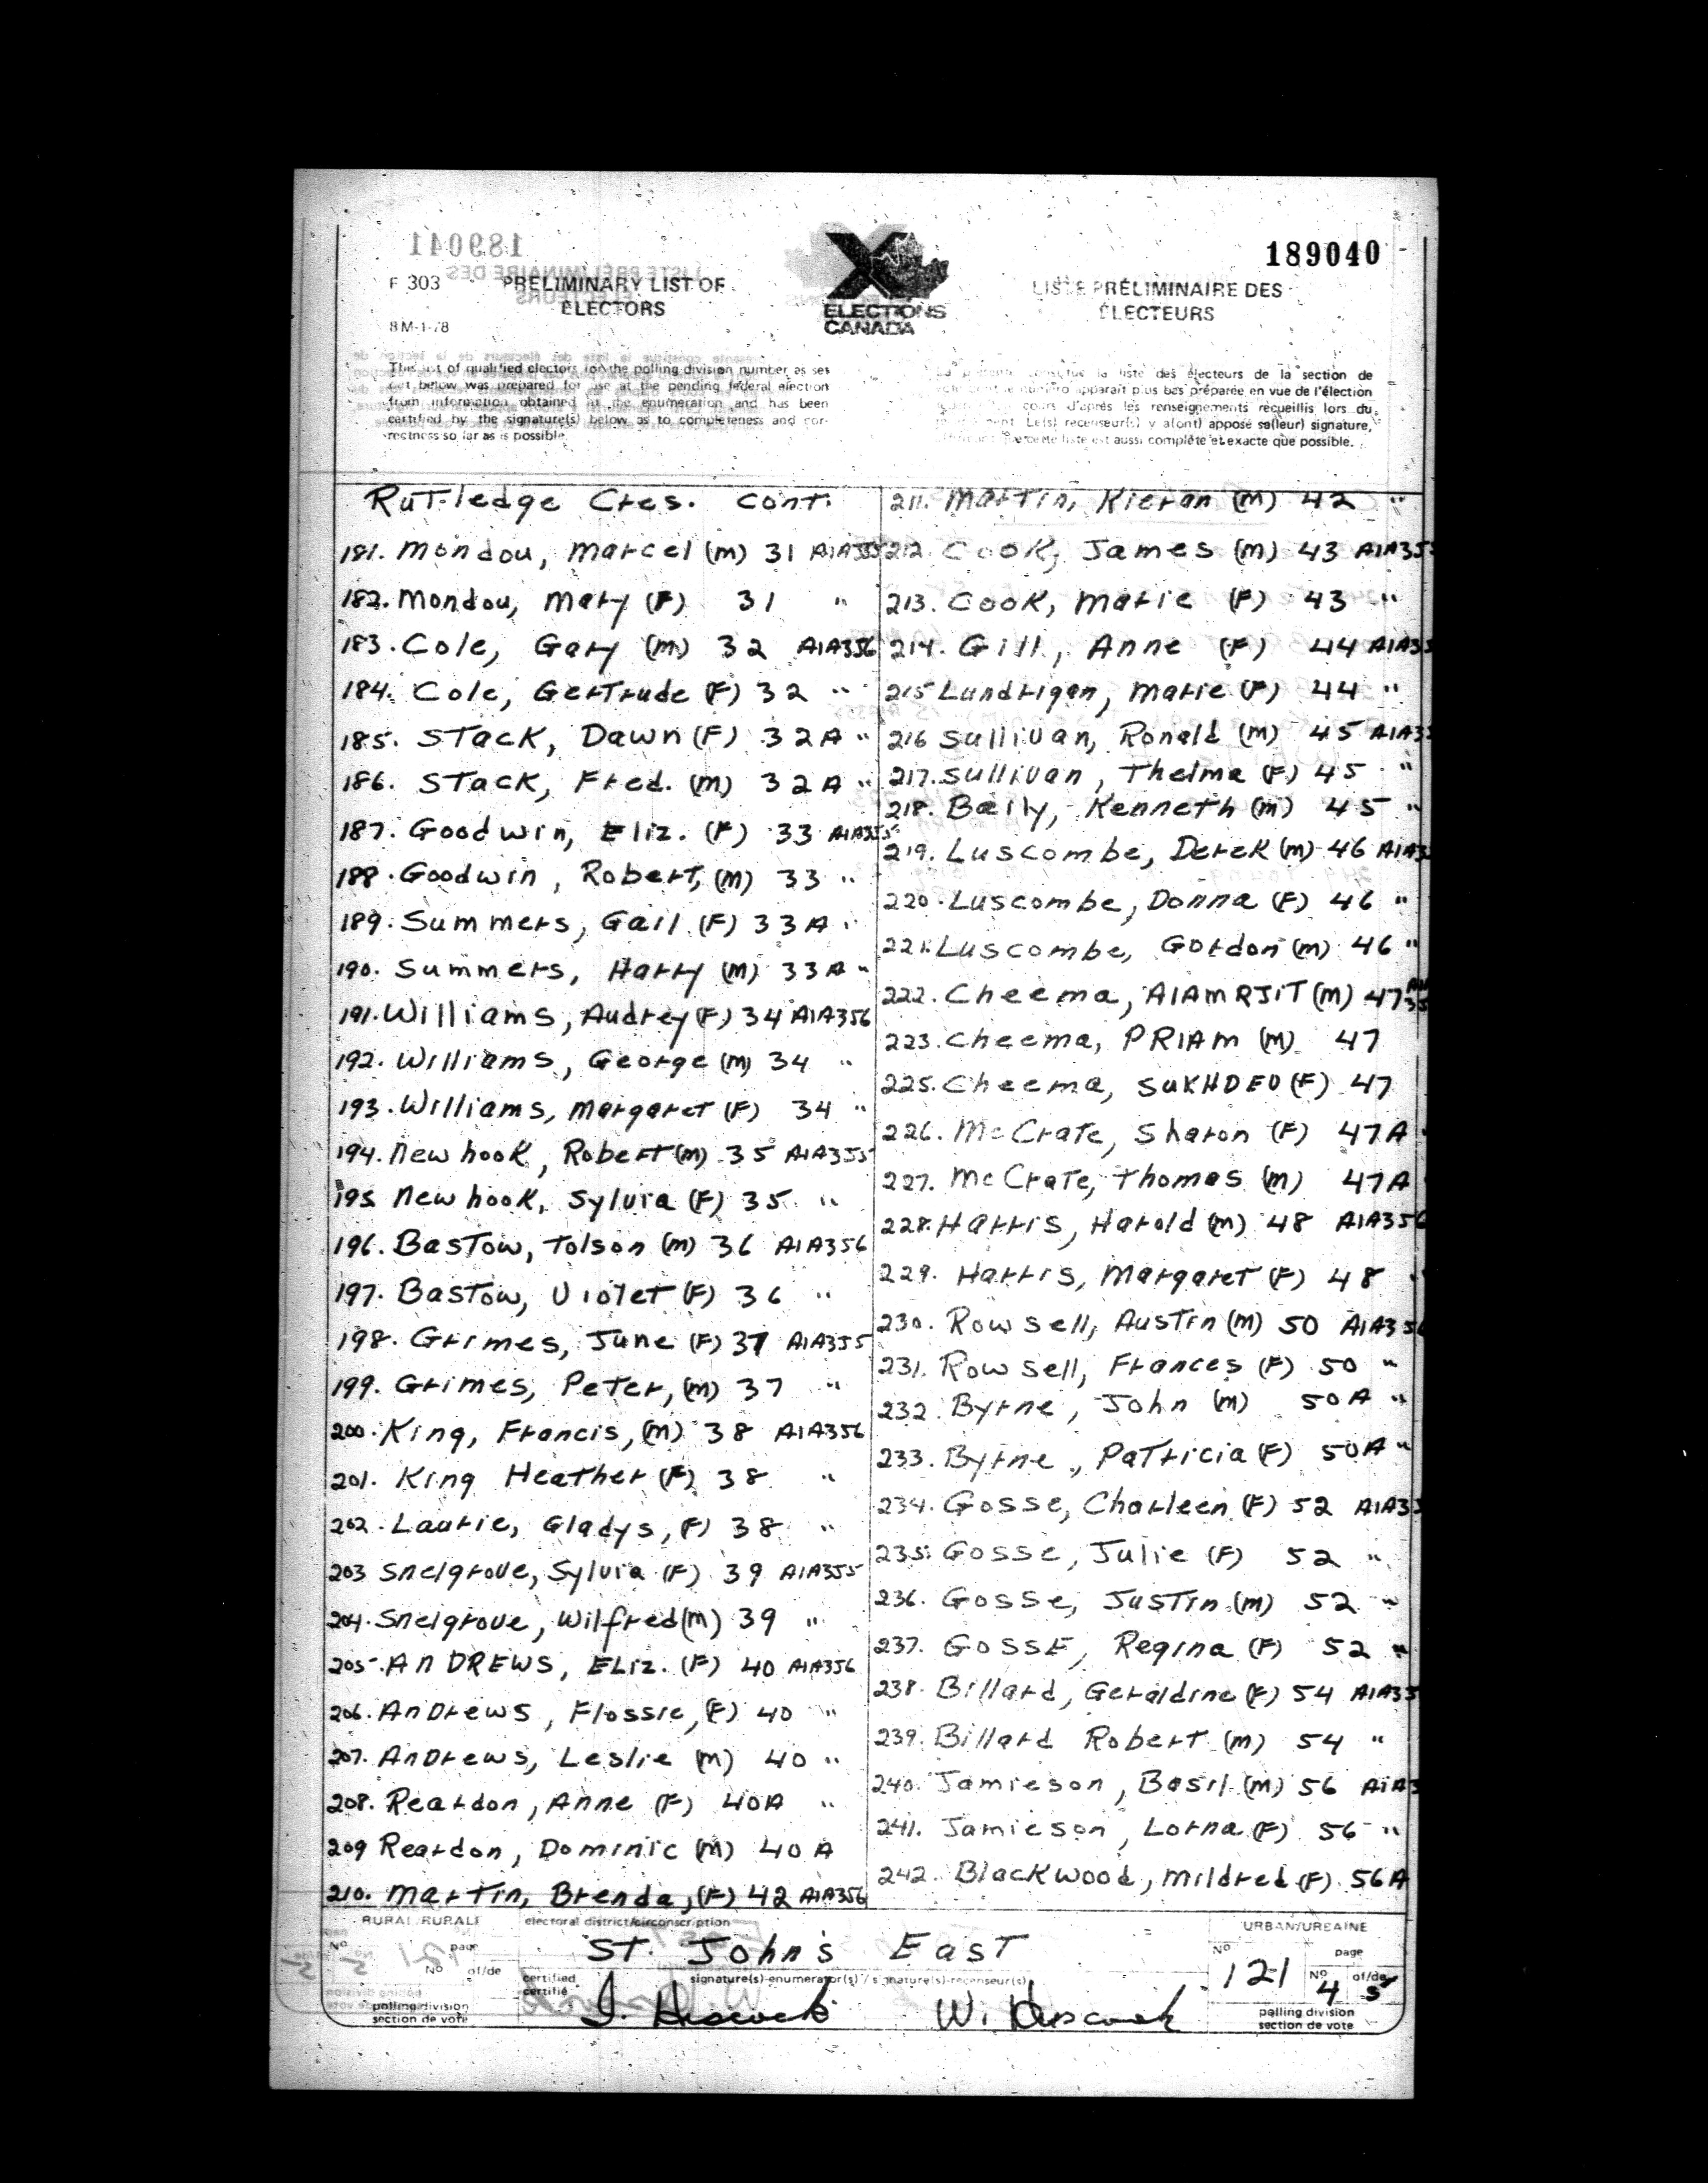 189040
F 303
PRELIMINARY LIST OF
ELECTORS
8M-1-78
ELECTIONS
CANADA
LISTE PRÉLIMINAIRE DES
ÉLECTEURS
This list of qualified electors for the polling division number as set
out below was prepared for use at the pending federal election
from information obtained at the enumeration and has been
certified by the signature(s) below as to completeness and cor-
rectness so far as is possible.
La présente constitue la liste des électeurs de la section de
numéro apparaît plus bas préparée en vue de l'élection
cours d'après les renseignements recueillis lors du
Le(s) recenseur(s) y a(ont) apposé sa(leur) signature,
cette liste est aussi complète et exacte que possible.
Rutledge Cres. Cont.
181. Mondou, Marcel (M) 31 A1A3S5
182. Mondou, Mary (F) 31 "
183. Cole, Gary (M) 32 A1A3S6
184. Cole, Gertrude (F) 32 "
185. Stack, Dawn (F) 32A "
186. Stack, Fred. (M) 32A "
187. Goodwin, Eliz. (F) 33 A1A3S5
188. Goodwin, Robert, (M) 33 "
189. Summers, Gail (F) 33A "
190. Summers, Harry (M) 33A "
191. Williams, Audrey (F) 34 A1A3S6
192. Williams, George (M) 34 "
193. Williams, Margaret (F) 34 "
194. Newhook, Robert (M) 35 A1A3S5
195 Newhook, Sylvia (F) 35 "
196. Bastow, Tolson (M) 36 A1A3S6
197. Bastow, Violet (F) 36 "
198. Grimes, June (F) 37 A1A3S5
199. Grimes, Peter, (M) 37 "
200. King, Francis, (M) 38 A1A3S6
201. King Heather (F) 38 "
202. Laurie, Gladys, (F) 38 "
203 Snelgrove, Sylvia (F) 39 A1A3S5
204. Snelgrove, Wilfred (M) 39 "
205. ANDREWS, ELiz. (F) 40 A1A3S6
206. AnDrews, Flossie, (F) 40 "
207. AnDrews, Leslie (M) 40 "
208. Reardon, Anne (F) 40A "
209 Reardon, Dominic (M) 40A
210. Martin, Brenda, (F) 42 A1A3S6
211. Martin, Kieran (M) 42 "
212. Cook, James (M) 43 A1A3S5
213. Cook, Marie (F) 43 "
214. Gill, Anne (F) 44 A1A3S
215 Lundrigan, Marie (F) 44 "
216 Sullivan, Ronald (M) 45 A1A3S
217. Sullivan, Thelma (F) 45 "
218. Baily, Kenneth (M) 45 "
219. Luscombe, Derek (M) 46 A1A3S
220. Luscombe, Donna (F) 46 "
221. Luscombe, Gordon (M) 46 "
222. Cheema, AIAMRJIT (M) 47
223. Cheema, PRIAM (M) 47
225. Cheema, SUKHDEV (F) 47
226. McCrate, Sharon (F) 47A
227. McCrate, Thomas (M) 47A
228. Harris, Harold (M) 48 A1A3S6
229. Harris, Margaret (F) 48 "
230. Rowsell, Austin (M) 50 A1A3S6
231. Rowsell, Frances (F) 50 "
232. Byrne, John (M) 50A "
233. Byrne, Patricia (F) 50A "
234. Gosse, Charleen (F) 52 A1A3S
235. Gosse, Julie (F) 52 "
236. Gosse, Justin (M) 52 "
237. GOSSE, Regina (F) 52 "
238. Billard, Geraldine (F) 54 A1A3S
239. Billard Robert (M) 54 "
240. Jamieson, Basil (M) 56 A1A3
241. Jamieson, Lorna (F) 56 "
242. Blackwood, Mildred (F) 56A
RURAL/RURALE
Nº
page
Nº of/de
polling division
section de vote
electoral district/circonscription
ST. John's East
certified
certifié
signature(s)-enumerator(s) / signature(s)-recenseur(s)
W. Hiscock
URBAN/URBAINE
Nº 121
page
Nº 4 of/de 5
polling division
section de vote